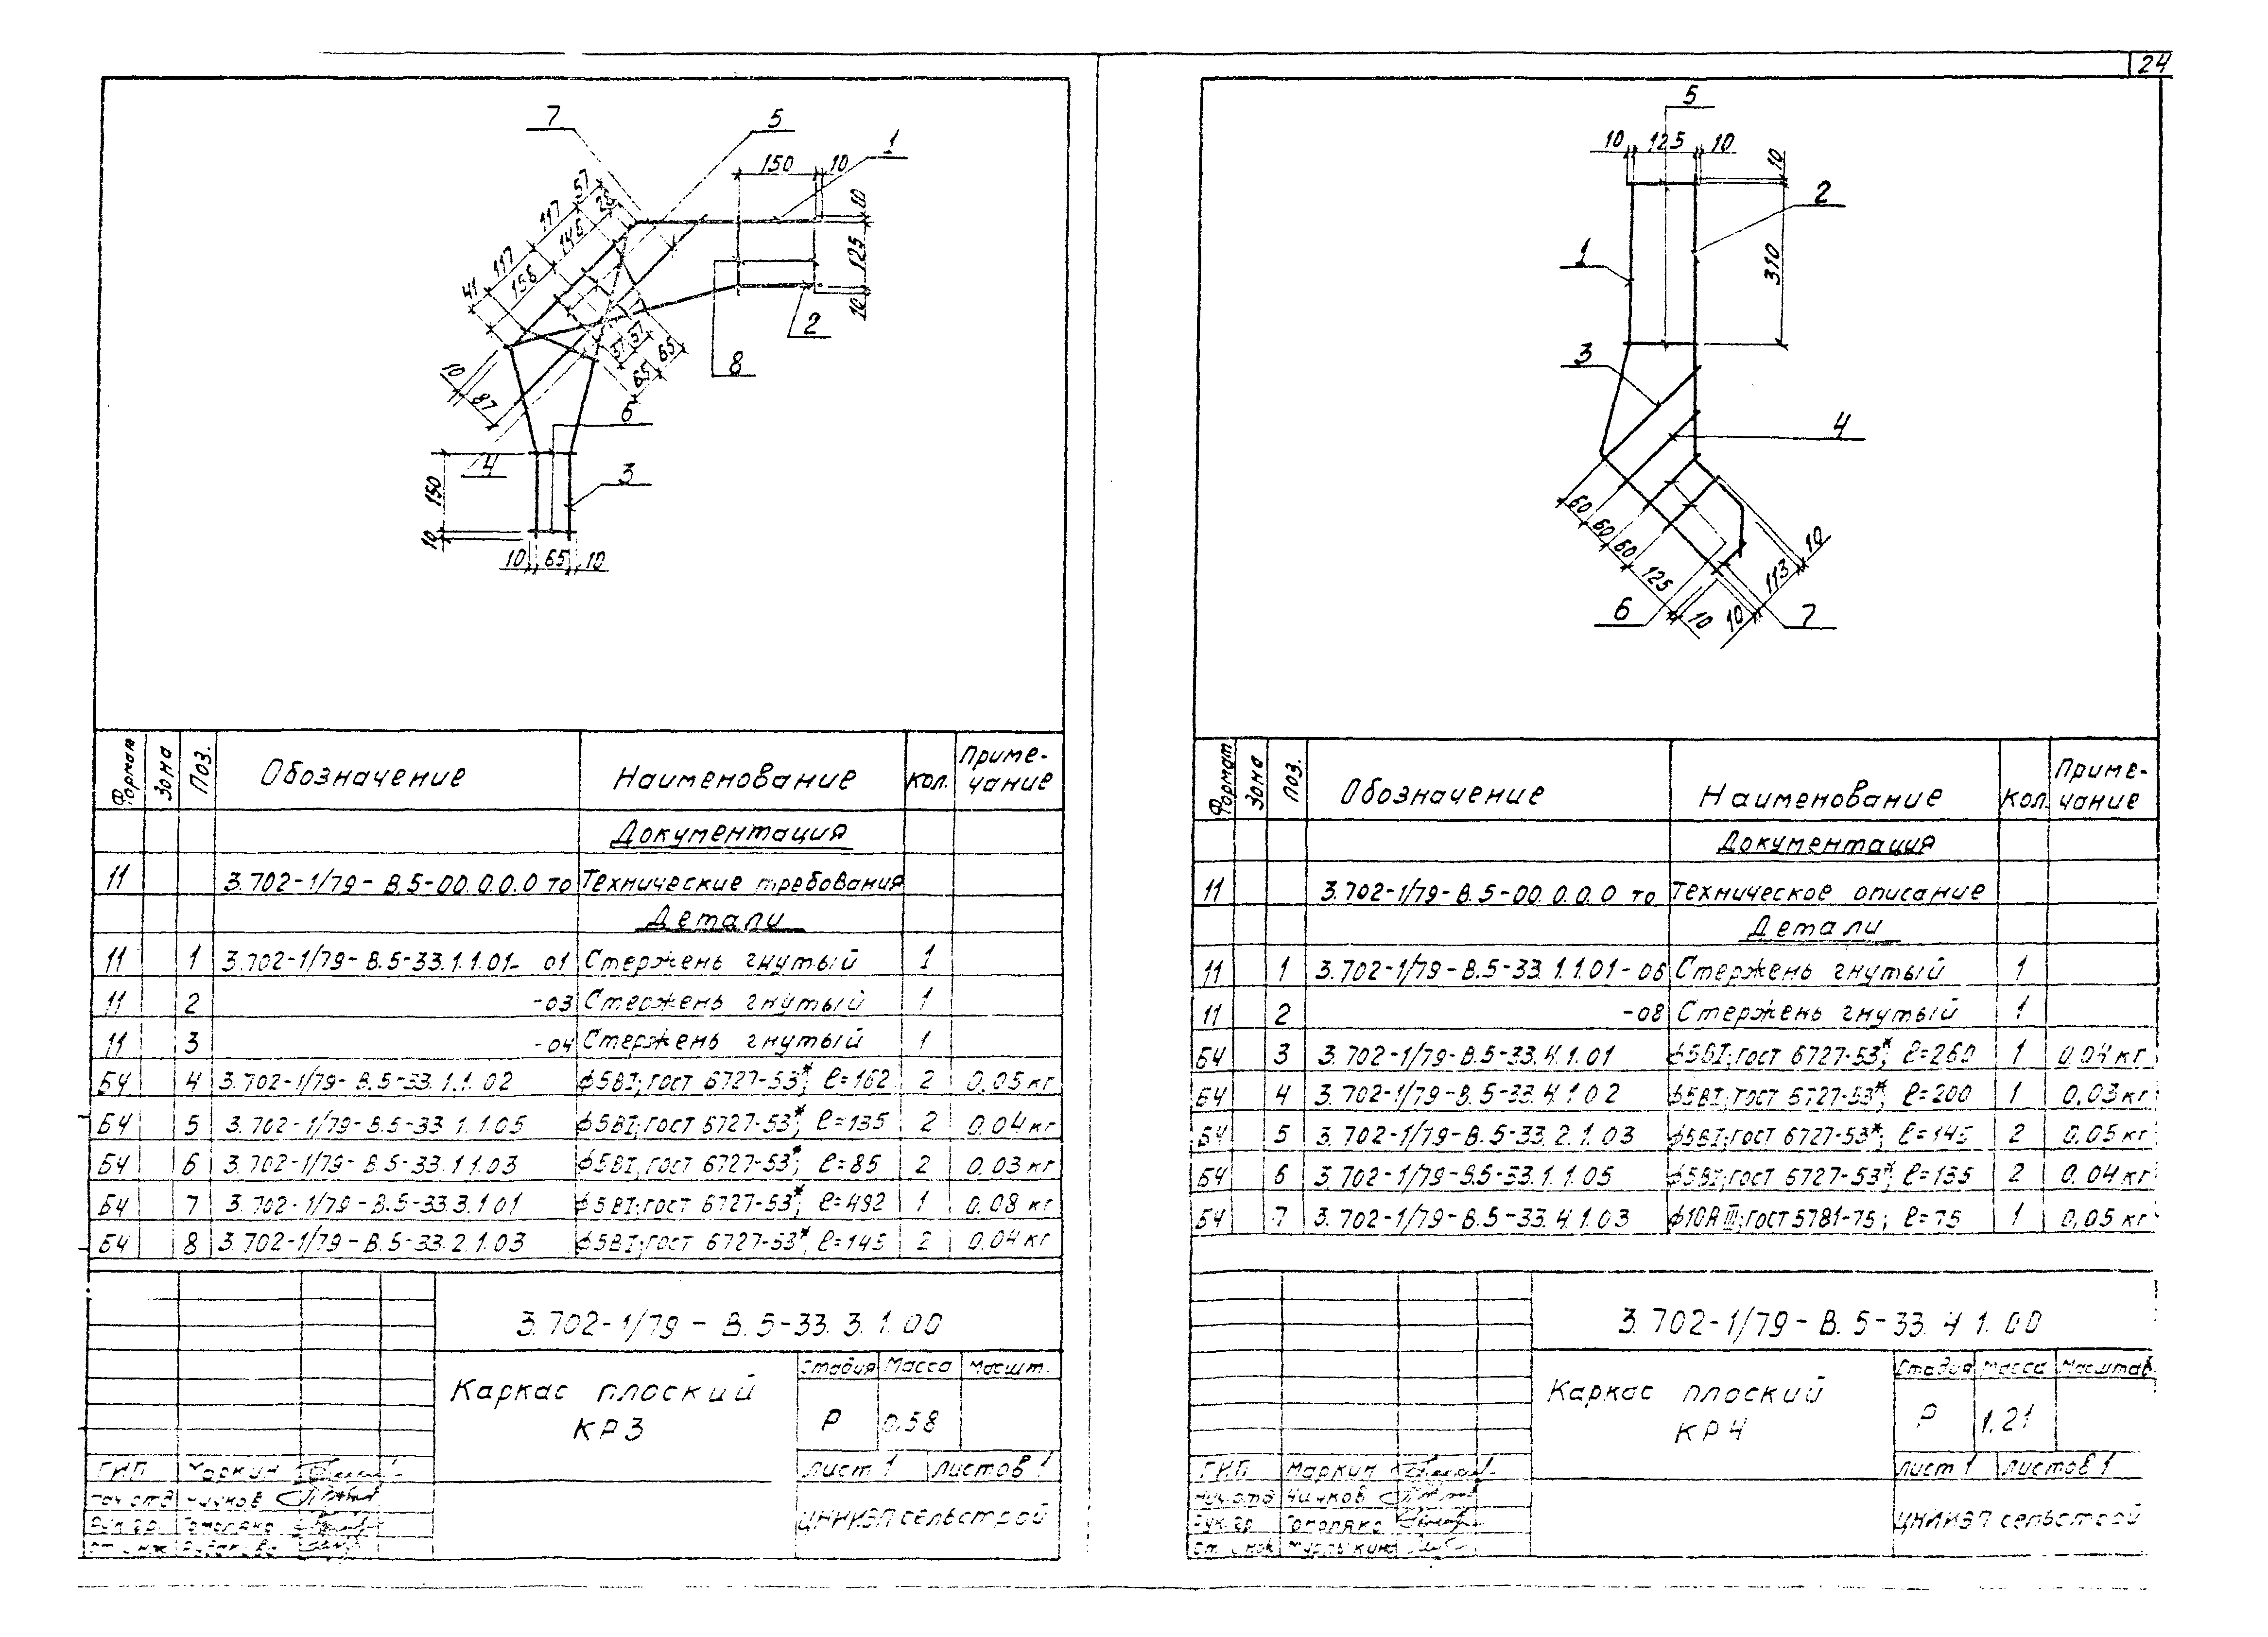 24
7
5
1
150
10
57
25
117
146
117
156
41
10
125
10
2
8
37
37
65
65
10
87
6
14
3
150
10
10 65 10
Формат
Зона
Поз.
Обозначение
Наименование
Кол.
Приме-
чание
Документация
11 3.702-1/79-В.5-00.0.0.0 то Технические требования
Детали
11 1 3.702-1/79-В.5-33.1.1.01- 01 Стержень гнутый 1
11 2 -03 Стержень гнутый 1
11 3 -04 Стержень гнутый 1
БЧ 4 3.702-1/79-В.5-33.1.1.02 ф5ВI; ГОСТ 6727-53*; ℓ=162 2 0,05 кг
БЧ 5 3.702-1/79-В.5-33.1.1.05 ф5ВI; ГОСТ 6727-53*; ℓ=135 2 0.04 кг
БЧ 6 3.702-1/79-В.5-33.1.1.03 ф5ВI, ГОСТ 6727-53*; ℓ=85 2 0.03 кг
БЧ 7 3.702-1/79-В.5-33.3.1.01 ф5ВI; ГОСТ 6727-53*; ℓ=492 1 0.08 кг
БЧ 8 3.702-1/79-В.5-33.2.1.03 ф5ВI; ГОСТ 6727-53*, ℓ=145 2 0.04 кг
3.702-1/79-В.5-33.3.1.00
Каркас плоский
КР3
Стадия Масса Масшт.
Р 0.58
Лист 1 Листов 1
ГИП Маркин
Нач.отд Чичков
Рук.гр. Гомоляко
ЦНИИЭПсельстрой
5
10 125 10
10
2
1
310
3
4
60
60
60
125
10
10
113
10
6
7
Формат
Зона
Поз.
Обозначение
Наименование
Кол.
Приме-
чание
Документация
11 3.702-1/79-В.5-00.0.0.0 то Техническое описание
Детали
11 1 3.702-1/79-В.5-33.1.1.01-06 Стержень гнутый 1
11 2 -08 Стержень гнутый 1
БЧ 3 3.702-1/79-В.5-33.4.1.01 ф5ВI; ГОСТ 6727-53*; ℓ=260 1 0,04 кг
БЧ 4 3.702-1/79-В.5-33.4.1.02 ф5ВI; ГОСТ 6727-53*; ℓ=200 1 0,03 кг
БЧ 5 3.702-1/79-В.5-33.2.1.03 ф5ВI; ГОСТ 6727-53*; ℓ=145 2 0,05 кг
БЧ 6 3.702-1/79-В.5-33.1.1.05 ф5ВI; ГОСТ 6727-53*; ℓ=135 2 0,04 кг
БЧ 7 3.702-1/79-В.5-33.4.1.03 ф10АIII; ГОСТ 5781-75; ℓ=75 1 0,05 кг
3.702-1/79-В.5-33.4 1.00
Каркас плоский
КР4
Стадия Масса Масштаб
Р 1.21
Лист 1 Листов 1
ГИП Маркин
Нач.отд Чичков
Рук.гр Гомоляко
Ст. инж Мурлыкина
ЦНИИЭПсельстрой